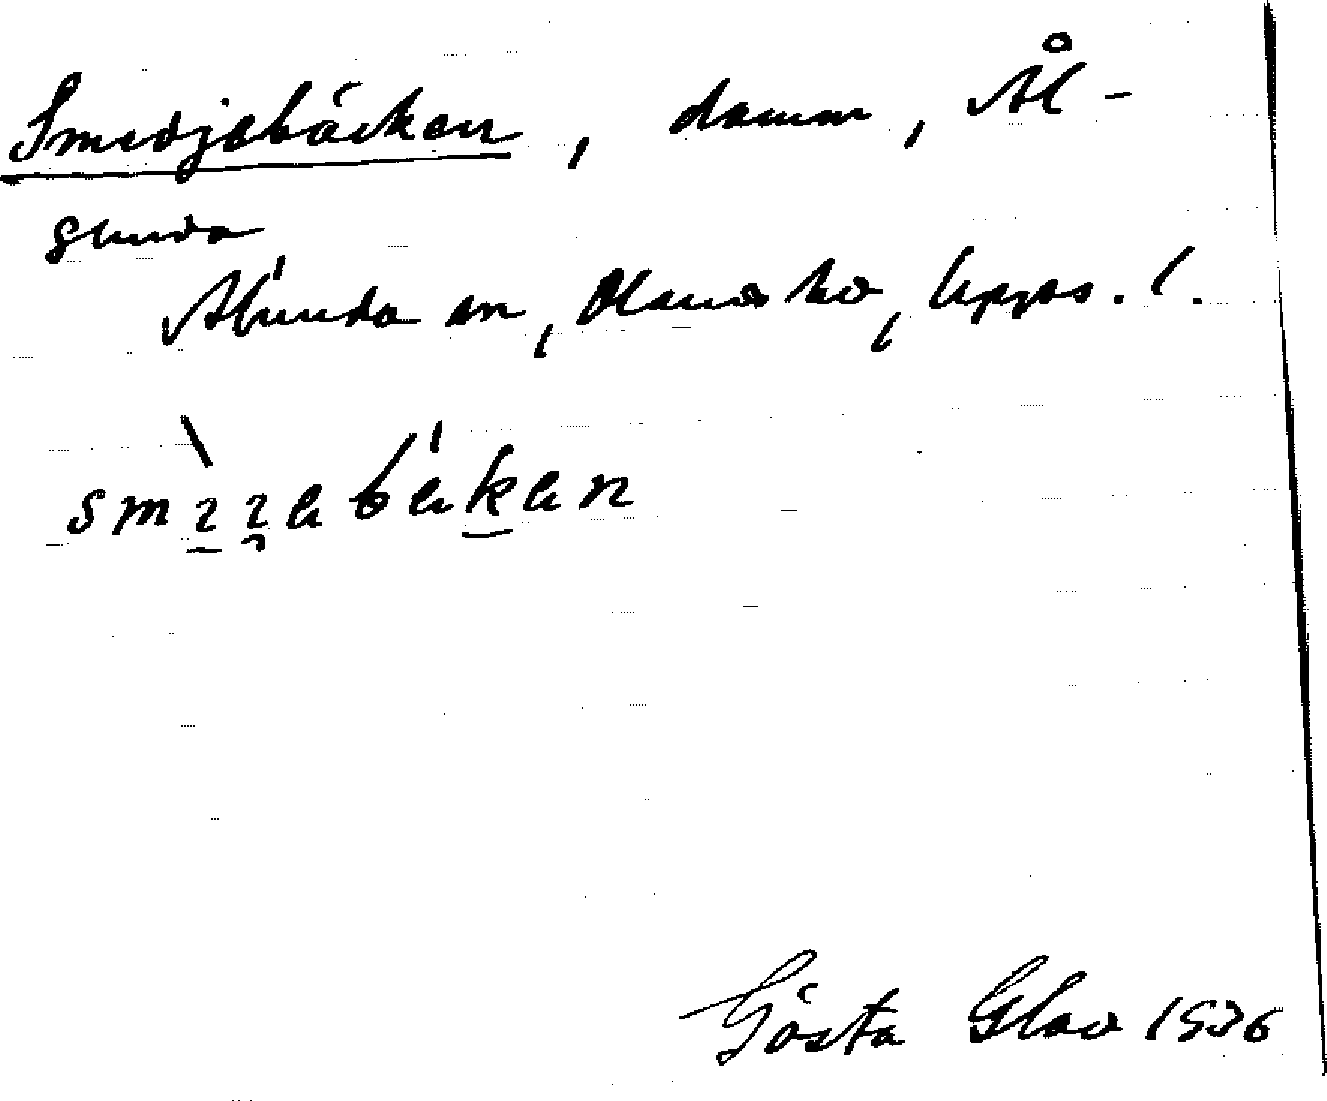 Smedjebäcken, damm, Ål-
gunda
Ålunda sn, Olands hd, Upps. l.
Gösta Glad 1936